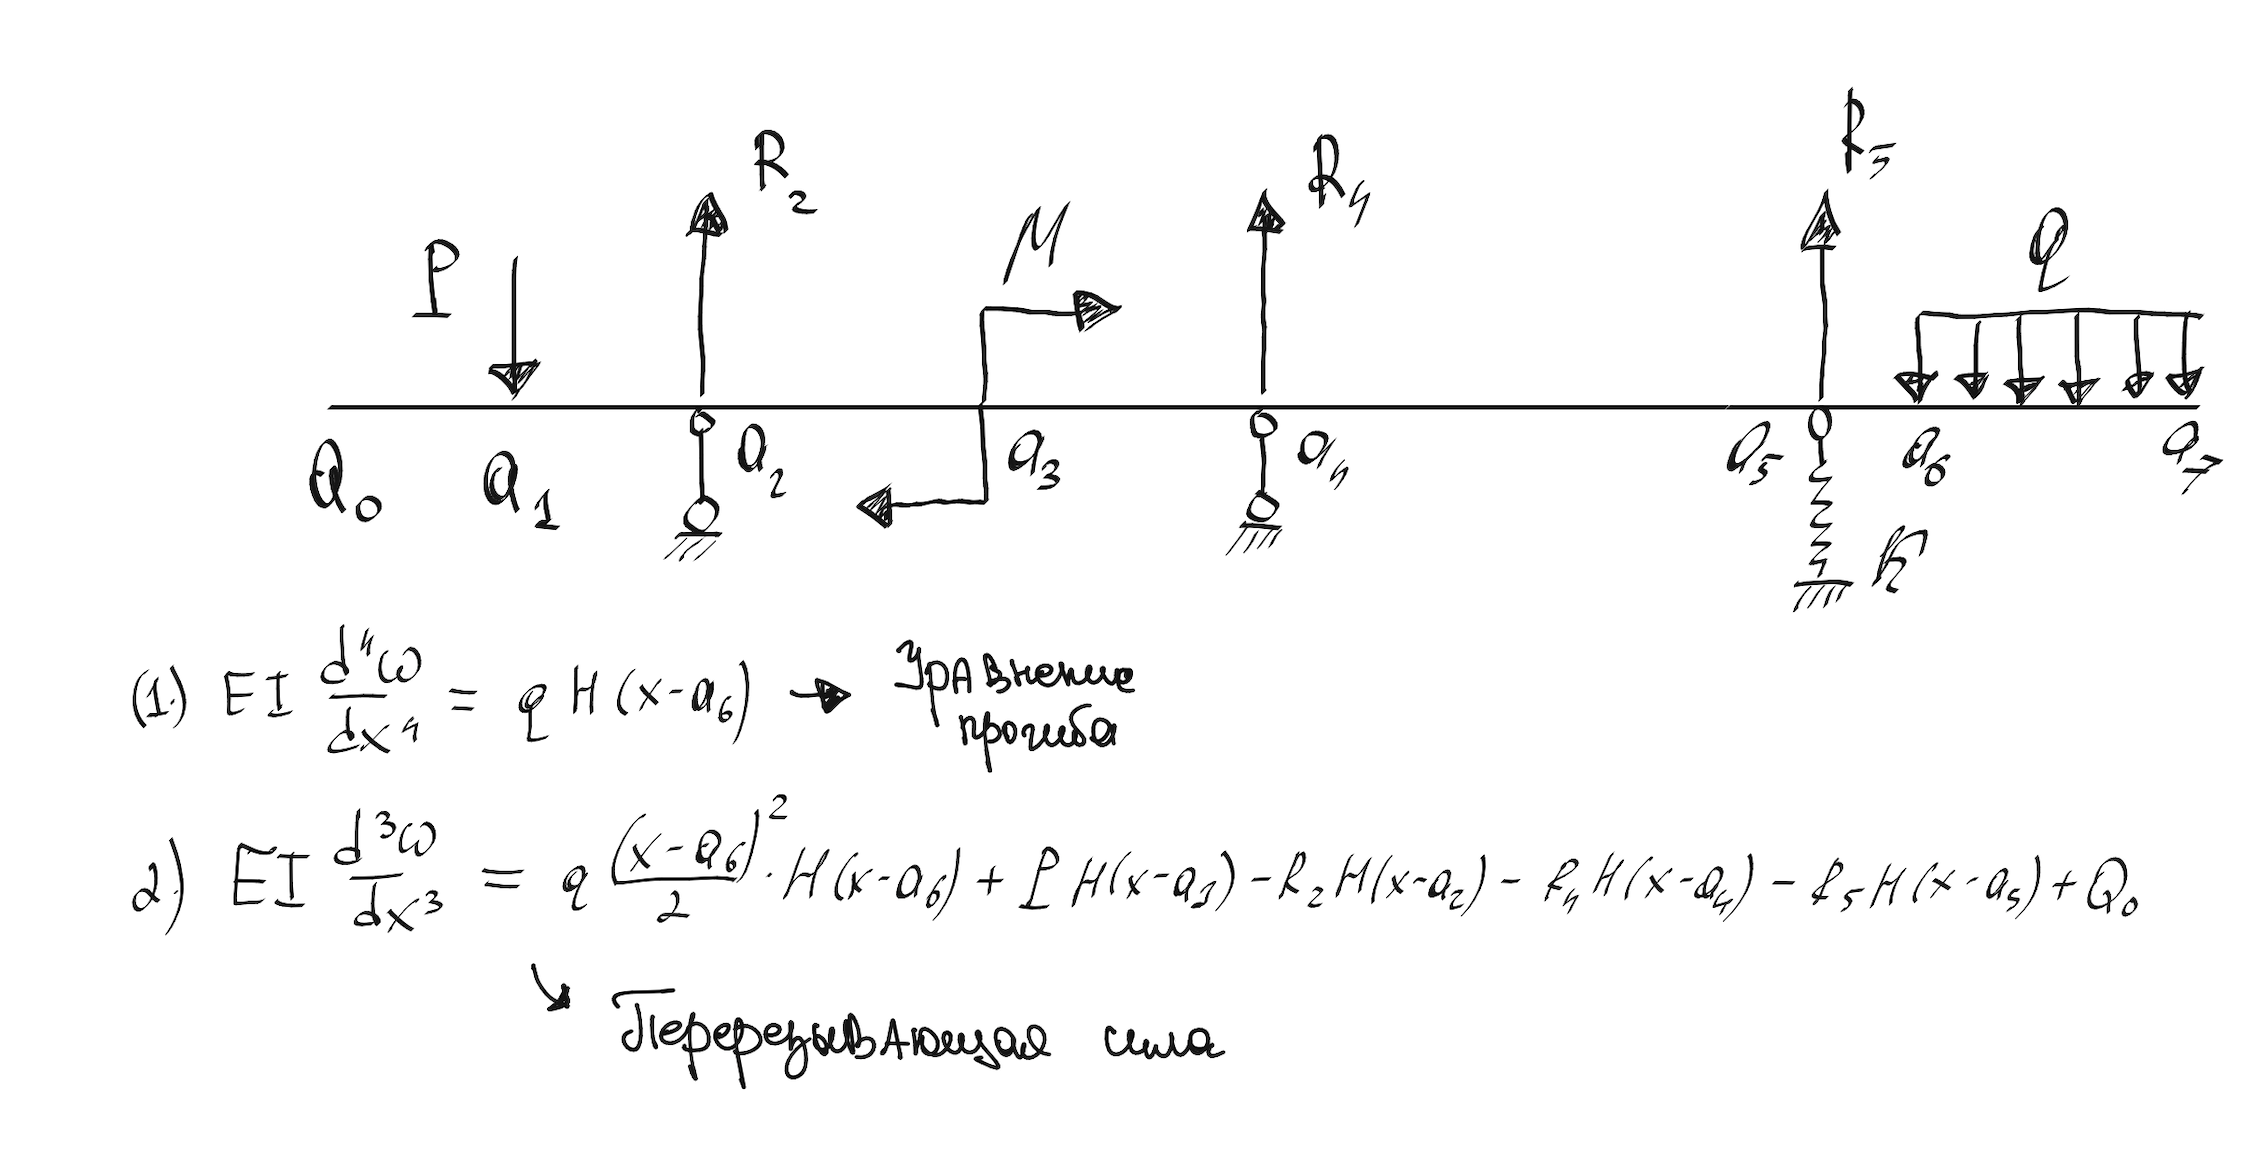 P R₂ M R₄ R₅ q
a₀ a₁ a₂ a₃ a₄ a₅ a₆ a₇
K
(1.) EI d⁴ω/dx⁴ = q H(x-a₆) → Уравнение прогиба
2.) EI d³ω/dx³ = q (x-a₆)²/2 · H(x-a₆) + P H(x-a₁) - R₂ H(x-a₂) - R₄ H(x-a₄) - R₅ H(x-a₅) + Q₀
↘ Перерезывающая сила